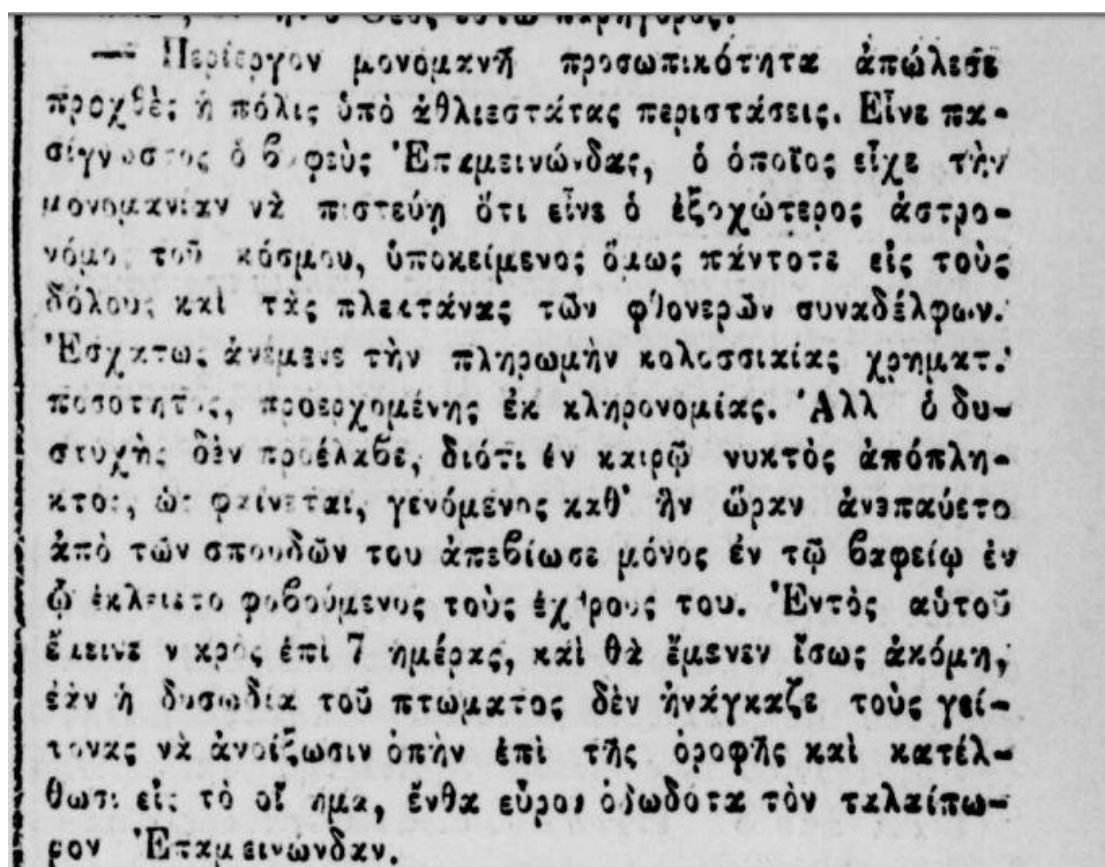 — Περίεργον μονομανῆ προσωπικότητα ἀπώλεσε
προχθὲς ἡ πόλις ὑπὸ ἀθλιεστάτας περιστάσεις. Εἶνε πα-
σίγνωστος ὁ βαφεὺς Ἐπαμεινώνδας, ὁ ὁποῖος εἶχε τὴν
μονομανίαν νὰ πιστεύῃ ὅτι εἶνε ὁ ἐξοχώτερος ἀστρο-
νόμος τοῦ κόσμου, ὑποκείμενος ὅμως πάντοτε εἰς τοὺς
δόλους καὶ τὰς πλεκτάνας τῶν φθονερῶν συναδέλφων.
Ἐσχάτως ἀνέμενε τὴν πληρωμὴν κολοσσιαίας χρηματ.
ποσότητος, προερχομένης ἐκ κληρονομίας. Ἀλλ ὁ δυ-
στυχὴς δὲν προέλαβε, διότι ἐν καιρῷ νυκτὸς ἀπόπλη-
κτος, ὡς φαίνεται, γενόμενος καθ' ἣν ὥραν ἀνεπαύετο
ἀπὸ τῶν σπουδῶν του ἀπεβίωσε μόνος ἐν τῷ βαφείῳ ἐν
ᾧ ἐκλείετο φοβούμενος τοὺς ἐχθρους του. Ἐντὸς αὐτοῦ
ἔμεινε νεκρὸς ἐπὶ 7 ημέρας, καὶ θὰ ἔμενεν ἴσως ἀκόμη,
ἐὰν ἡ δυσωδία τοῦ πτώματος δὲν ἠνάγκαζε τοὺς γεί-
τονας νὰ ἀνοίξωσιν ὀπὴν ἐπὶ τῆς ὀροφῆς καὶ κατέλ-
θωσι εἰς τὸ οἴκημα, ἔνθα εὗρον ὀδωδότα τὸν ταλαίπω-
ρον Ἐπαμεινώνδαν.